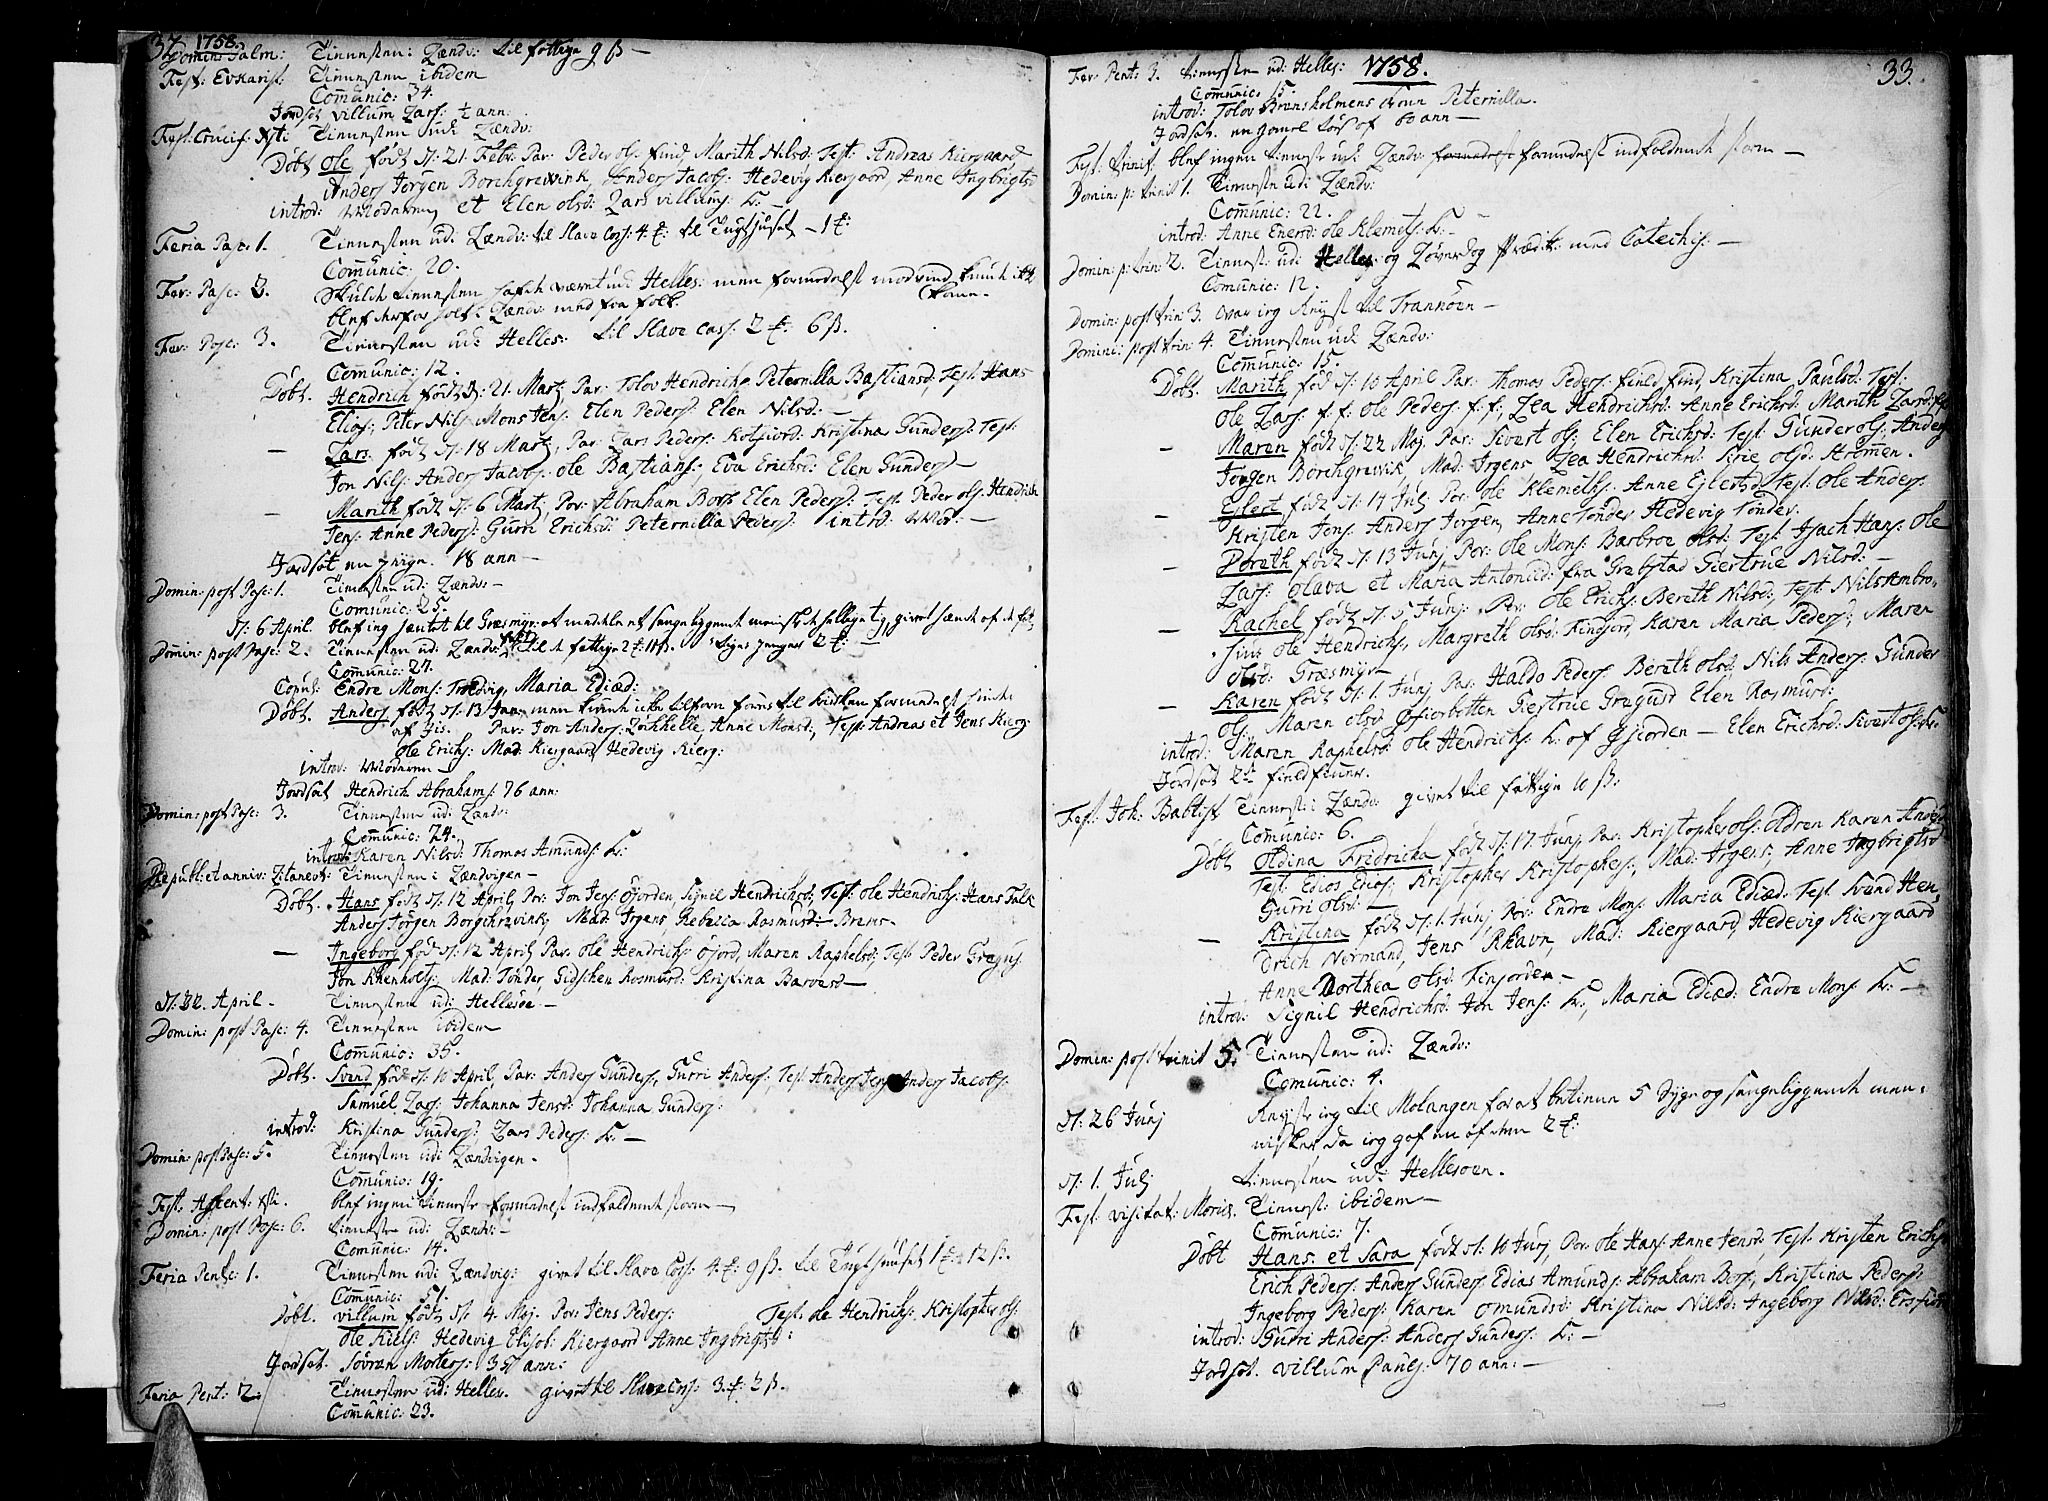 32 1758.
Domin: Palm: Tienesten: Lændv: til fattige 9 ß —
Fest: Evkarist: Tienesten ibidem
Comunic: 34.
Jordsat Villum Lars: ½ ann:
Fest: Crucif: Xsti Tienesten udi Lændv:
Døbt Ole født d: 21. Febr: Par: Peder Ols: find, Marith Nilsd: Test: Andreas Kiergaard
Anders Jørgen Borchgrewink, Anders Jacobs: Hedevig Kiergaard, Anne Ingbrigtsd
introd: Moderen et Elen Olsd: Lars Villums: K: —
Feria Pasc: 1. Tienesten udi Lændv: til Slave Cass: 4 : til Tugthuset — 1 :
Comunic: 20.
Fer: Pasc: 2. Skulde tienesten hafde været udi Helles: men formedelst modvind kunde ikke
blef derfor holt i Lændv: med faa folk.
Fer: Pasc: 3. Tienesten udi Helles: til Slave cass: 2 : 6 ß.
Comunic: 12.
Døbt. Hendrich født d: 21. Martz, Par: Tolov Hendrichs, Peternilla Bastiansd, Test: Hans
Elias: Peter Nils: Mons Jens: Elen Peders: Elen Nilsd: —
— Lars født d: 18 Martz, Par: Lars Peders: Kristina Gunders: Test:
Jon Nils: Anders Jacobs: Ole Bastians: Eva Erichsd: Elen Gunders —
— Marith født d: 6 Martz, Par: Abraham Bors Elen Peders: Test: Peder Ols: Hendrich
Jens: Anne Peders: Gurri Erichsd: Peternilla Peders: introd: Mod: —
Jordsat en pige. 18 ann —
Domin: post Pasc: 1. Tienesten udi Lændv: —
Comunic: 25.
d: 6 April. blef ieg hæntet til Græsmyr: at meddele et sengeliggende
Domin: post Pasc: 2. Tienesten udi Lændv:
Comunic: 27.
Copul: Endre Mons: Maria Ediæd:
Døbt. Anders født d: 13 Jan: men kunde icke tilforn føres til kirken formedelst
af Jis. Par: Jon Anders: Anne Monsd:, Test: Andreas et Jens Kierg:
Ole Erichs: Mad: Kiergaard Hedevig Kierg:
introd: Moderen —
Jordsat Hendrich Abrahams: 76 ann:
Domin: post Pasc: 3. Tienesten udi Lændv:
Comunic: 24.
introd: Karen Nilsd: Thomas Amunds: K:
Tienesten i Lændvigen —
Døbt. Hans født d: 12 April, Par: Jon Jens: Øjorden, Signil Hendrichsd, Test: Ole Hendrichs: Hans Falk
Anders Jørgen Borgchrevink, Mad: Irgens, Rebecca Rasmusd: Brems —
— Ingeborg fød d: 12 April, Par: Ole Hendrichs: Øjord, Maren Raphelsd, Test: Peder Gregus
Jon Rhenholts, Mad: Tønder Gidschen Rasmusd: Kristina Barvesd —
d: 22. April — Tienesten udi Hellesøe —
Domin: post Pasc: 4. Tienesten ibidem
Comunic: 35.
Døbt. Svend født d: 10 April, Par: Anders Gunders, Gurri Anders:, Test: Anders Jens Anders Jacobs:
Samuel Lars: Johanna Jensd: Johanna Gunders:
introd: Kristina Gunders: Lars Peders: K: —
Domin: post Pasc: 5. Tienesten udi Lændvigen.
Comunic: 19.
Fest. Assent: Xsti. blef ingen tieneste formedelst indfaldende storm —
Domin: post Pasc: 6. tieneste udi Lændv: —
Comunic: 14.
Feria Pente: 1. Tienesten udi Lændvig: givet til Slave Cass: 4 : 9 ß. til Tugthuuset 1 : 12 ß.
Comunic: 51.
Døbt. Villum født d: 4. Maj. Par: Jens Peders: Test: Ole Hendrichs, Kristopher Ols:
Ole Niels: Hedevig Elisab: Kiergaard Anne Ingbrigtsd:
Jordsat. Søvren Morters: 35 ann:
Feria Pent: 2: Tienesten udi Helles. givet til Slave Cass: 3 : 2 ß.
Comunic: 23.
1758. 33.
Fer: Pent: 3. tienesten udi Helles:
Comunic: 15.
introd: Tolov Brensholmens Kone Peternilla.
Jordsat. en gamel 60 ann —
Fest: trinit: blef ingen tieneste udi Lændv: formedelst indfaldende storm —
Domin: p: trinit 1. Tienesten udi Lændv:
Comunic: 22.
introd: Anne Enersd: Ole Klemets: K: —
Domin: p: trin: 2. Tienest: udi Helles: og Løverdag Prædik: med Catechis: —
Comunic: 12.
Domin: post trin: 3. var ieg Rejst til Trannøen —
Domini: post trin: 4. Tienesten udi Lændv:
Comunic: 15.
Døbt. Marith fød d: 10 April Par: Thomas Peders: find, Kristina Paulsd: Test:
Ole Lars: f: f: Ole Peders: f: f:, Lea Hendrichsd: Anne Erichsd: Marith Larsd:
— Maren født d: 22 Maj, Par: Sivert Ols: Elen Erichsd: Test: Gunder Ols: Anders
Jørgen Borchgrewik, Mad: Irgens Lea Hendrichsd: Sirie Olsd: Strømmen.
— Eilert født d: 14 Par: Ole Klemeths: Anne Ejlertsd Test: Ole Anders:
Kristen Jens: Anders Jørgen, Anne Tønder Hedevig Tønder.
— Dorath født d: 13 Junj Par: Ole Mons: Barbroe Olsd: Test: Isach Hans: Ole
Lars: Olava et Maria Antonisd: fra Grebstad Giertrue Nilsd: —
— Rachel født d: 5 Junj: Par: Ole Erichs: Berith Nilsd:, Test: Nils Ambro=
sius Ole Hendrichs, Margreth Olsd: Finfjord, Karen Maria Peders: Maren
Olsd: Græsmyr —
— Karen født d: 1. Junj Par: Haldo Peders: Berith Olsd: Nils Anders: Gunder
Ols: Maren Olsd Giertrue Gregusd Elen Rasmusd:
introd: Maren Raphelsd: Ole Hendrichs: K: af Øjorden — Elen Erichsd: Sivert Ols: K:
Jordsat
Fest: Joh: Babtist Tienest: i Lændv: givet til fattige 10 ß:
Comunic: 6.
Døbt Oldina Fridricha født d: 17 Junj, Par: Kristopher Ols: Karen Anders
Test: Edios Edios: Kristopher Kristophes:, Mad: Irgens, Anne Ingbrigtsd
Gurri Olsd: —
— Kristina født d: 1. Junj, Par: Endre Mons: Maria Ediæd: Test: Svend Hen=
drich Normand, Jens Rhavn, Mad: Kiergaard, Hedevig Kiergaard
Anne Dorthea Olsd: Finjorden —
introd: Signil Hendrichsd Jon Jens: K:, Maria Ediæd: Endre Mons: K: —
Domin: post trinit 5. Tienesten udi Lændv:
Comunic: 4.
d: 26 Junj Rejste ieg til Malangen for at betiene 5 syge og sengeliggende men=
nisker da ieg gaf en af dem 2 :
d: 1. Julj tienesten udi Hellesøen.
Fest: visitat: Mariæ. Tienest: ibidem —
Comunic: 7.
Døbt Hans et Sara født d: 10 Junj, Par: Ole Hans: Anne Jensd, Test: Kristen Erichs:
Erich Peders: Anders Gunders: Edias Amunds: Abraham Bors, Kristina Peders:
Ingeborg Peders: Karen Omundsd: Kristina Nilsd: Ingeborg Nilsd: Ersfiord
introd: Gurri Anders: Anders Gunders: K: —
Jordsat. Villum Pauls: 70 ann: —